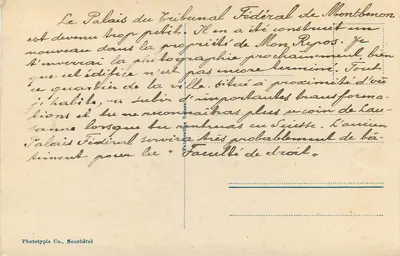 Le Palais du Tribunal Fédéral de Montbenon
est devenu trop petit. Il en a été construit un
nouveau dans la propriété de Mon Repos. Je
t'enverrai la photographie prochainement, bien
que cet édifice n'est pas encore terminé. Tout
ce quartier de la ville, situé à proximité d'où
j'habite, va subir d'importantes transforma-
tions et tu ne reconnaîtras plus ce coin de Lau-
sanne lorsque tu rentreras en Suisse. L'ancien
Palais Fédéral servira très probablement de bâ-
timent pour la "Faculté de droit"
Phototypie Co., Neuchâtel